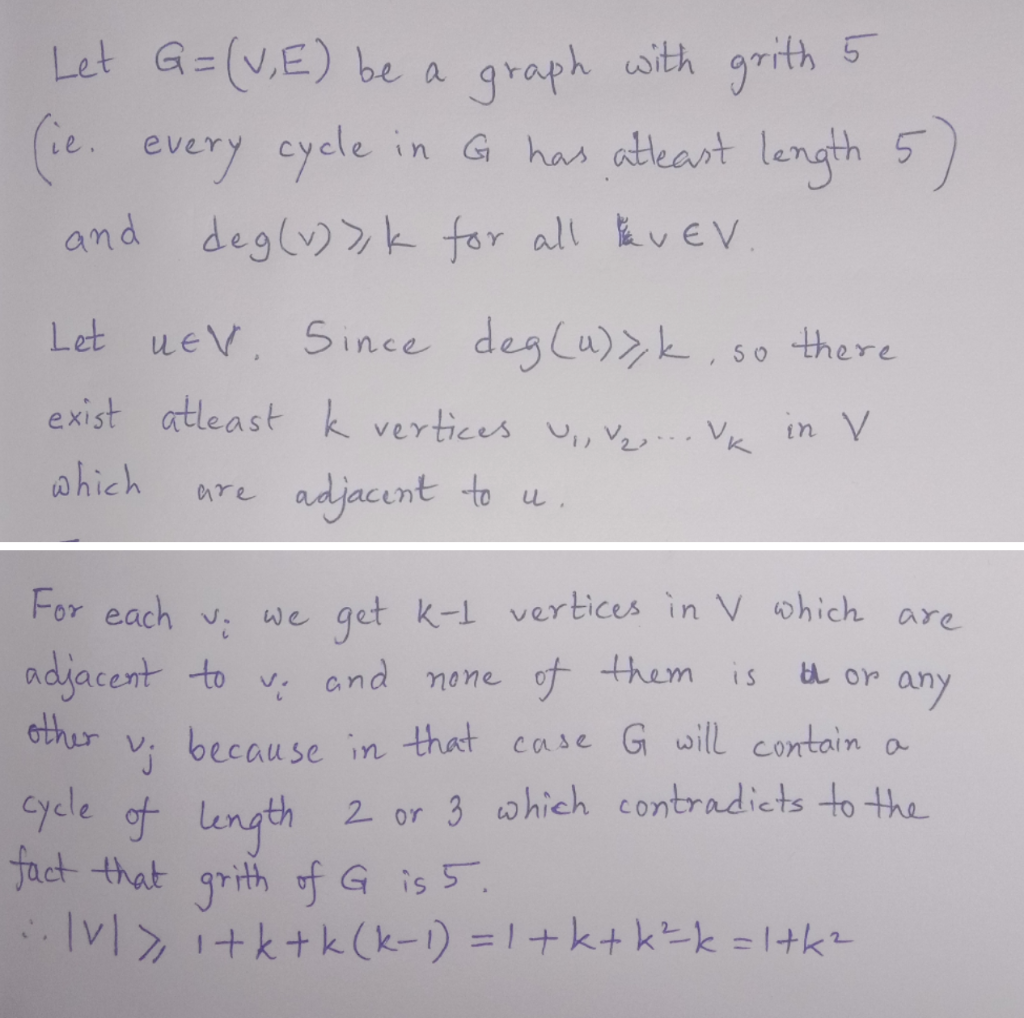 Let G=(V,E) be a graph with grith 5
(ie. every cycle in G has atleast length 5)
and deg(v)⩾k for all v∈V.
Let u∈V. Since deg(u)⩾k, so there
exist atleast k vertices v₁, v₂, ... vₖ in V
which are adjacent to u.
For each vᵢ we get k-1 vertices in V which are
adjacent to vᵢ and none of them is u or any
other vⱼ because in that case G will contain a
cycle of length 2 or 3 which contradicts to the
fact that grith of G is 5.
∴ |V| ⩾ 1+k+k(k-1) = 1+k+k²-k = 1+k²